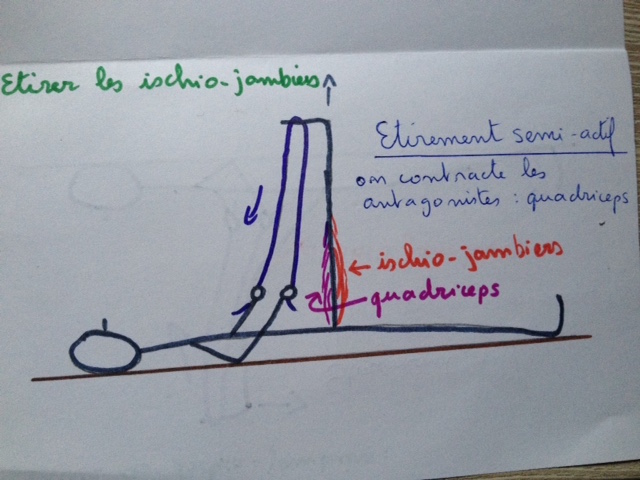 Etirer les ischio-jambiers
Etirement semi-actif
on contracte les
antagonistes : quadriceps
ischio-jambiers
quadriceps